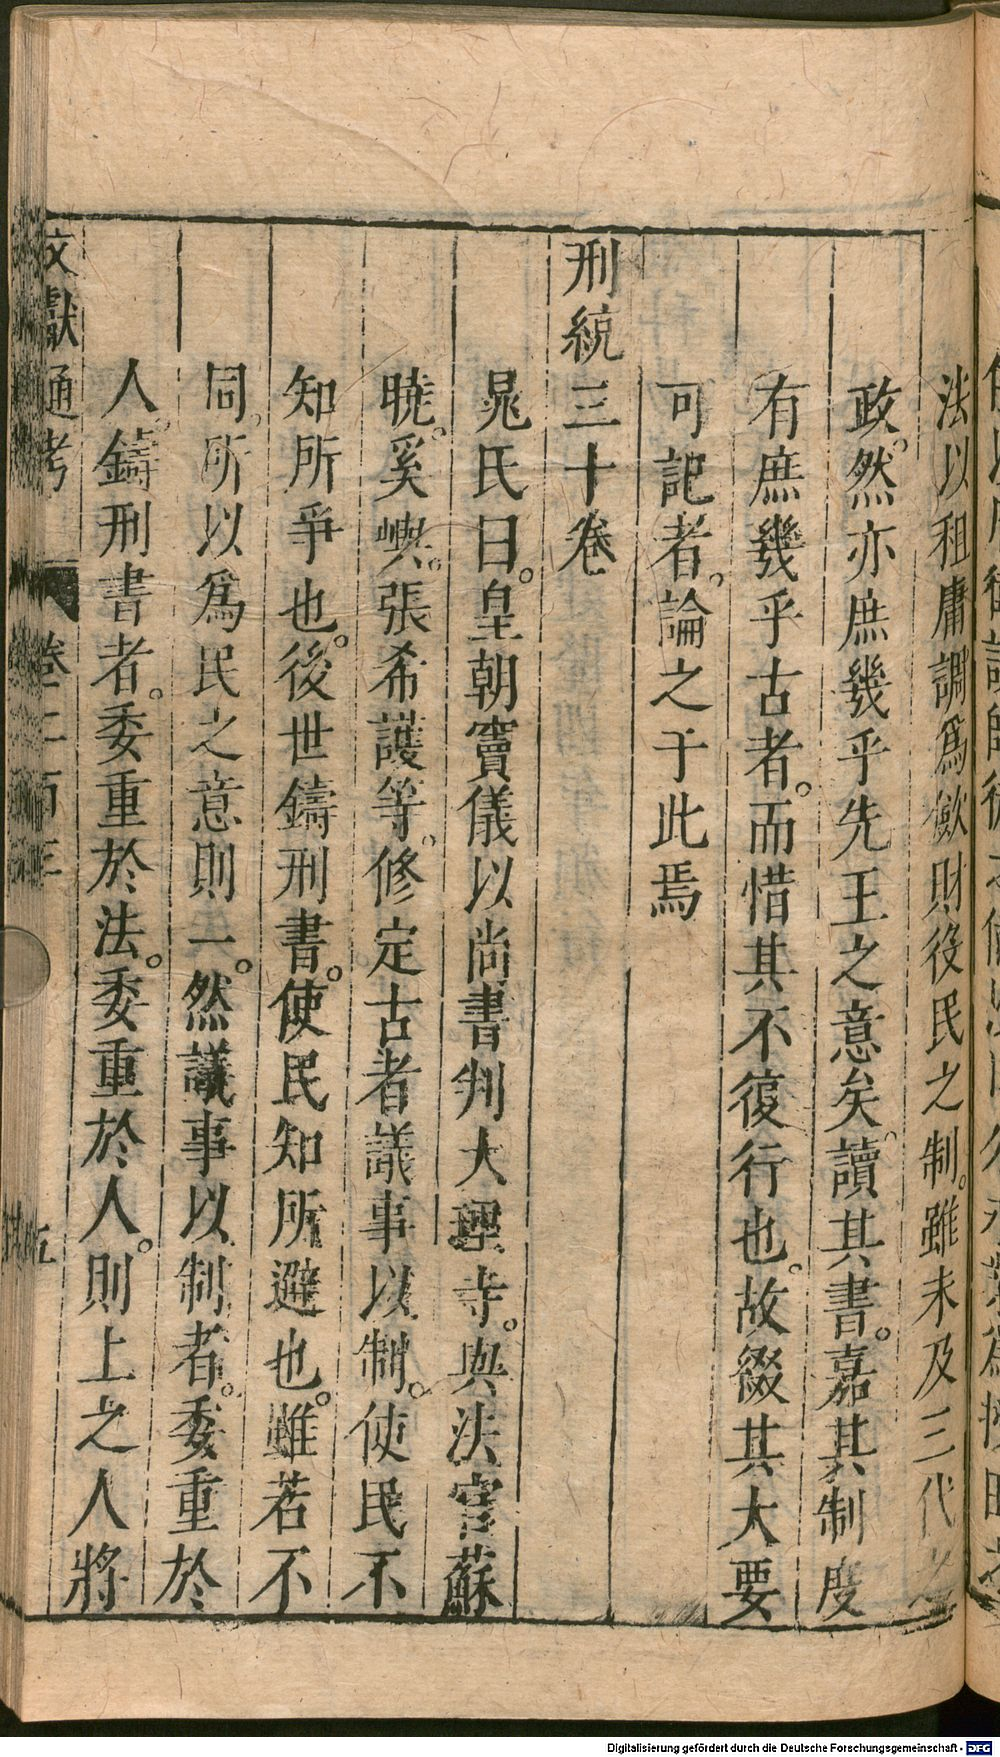 法以租庸調爲斂財役民之制。雖未及三代之
政。然亦庶幾乎先王之意矣。讀其書。嘉其制度
有庶幾乎古者。而惜其不復行也。故綴其大要
可記者。論之于此焉
刑統三十卷
晁氏曰。皇朝竇儀以尚書判大理寺。與法官蘇
曉。奚嶼。張希護等。修定古者議事以制。使民不
知所爭也。後世鑄刑書。使民知所避也。雖若不
同。所以爲民之意則一。然議事以制者。委重於
人。鑄刑書者。委重於法。委重於人。則上之人將
文獻通考 卷二百三
Digitalisierung gefördert durch die Deutsche Forschungsgemeinschaft - DFG